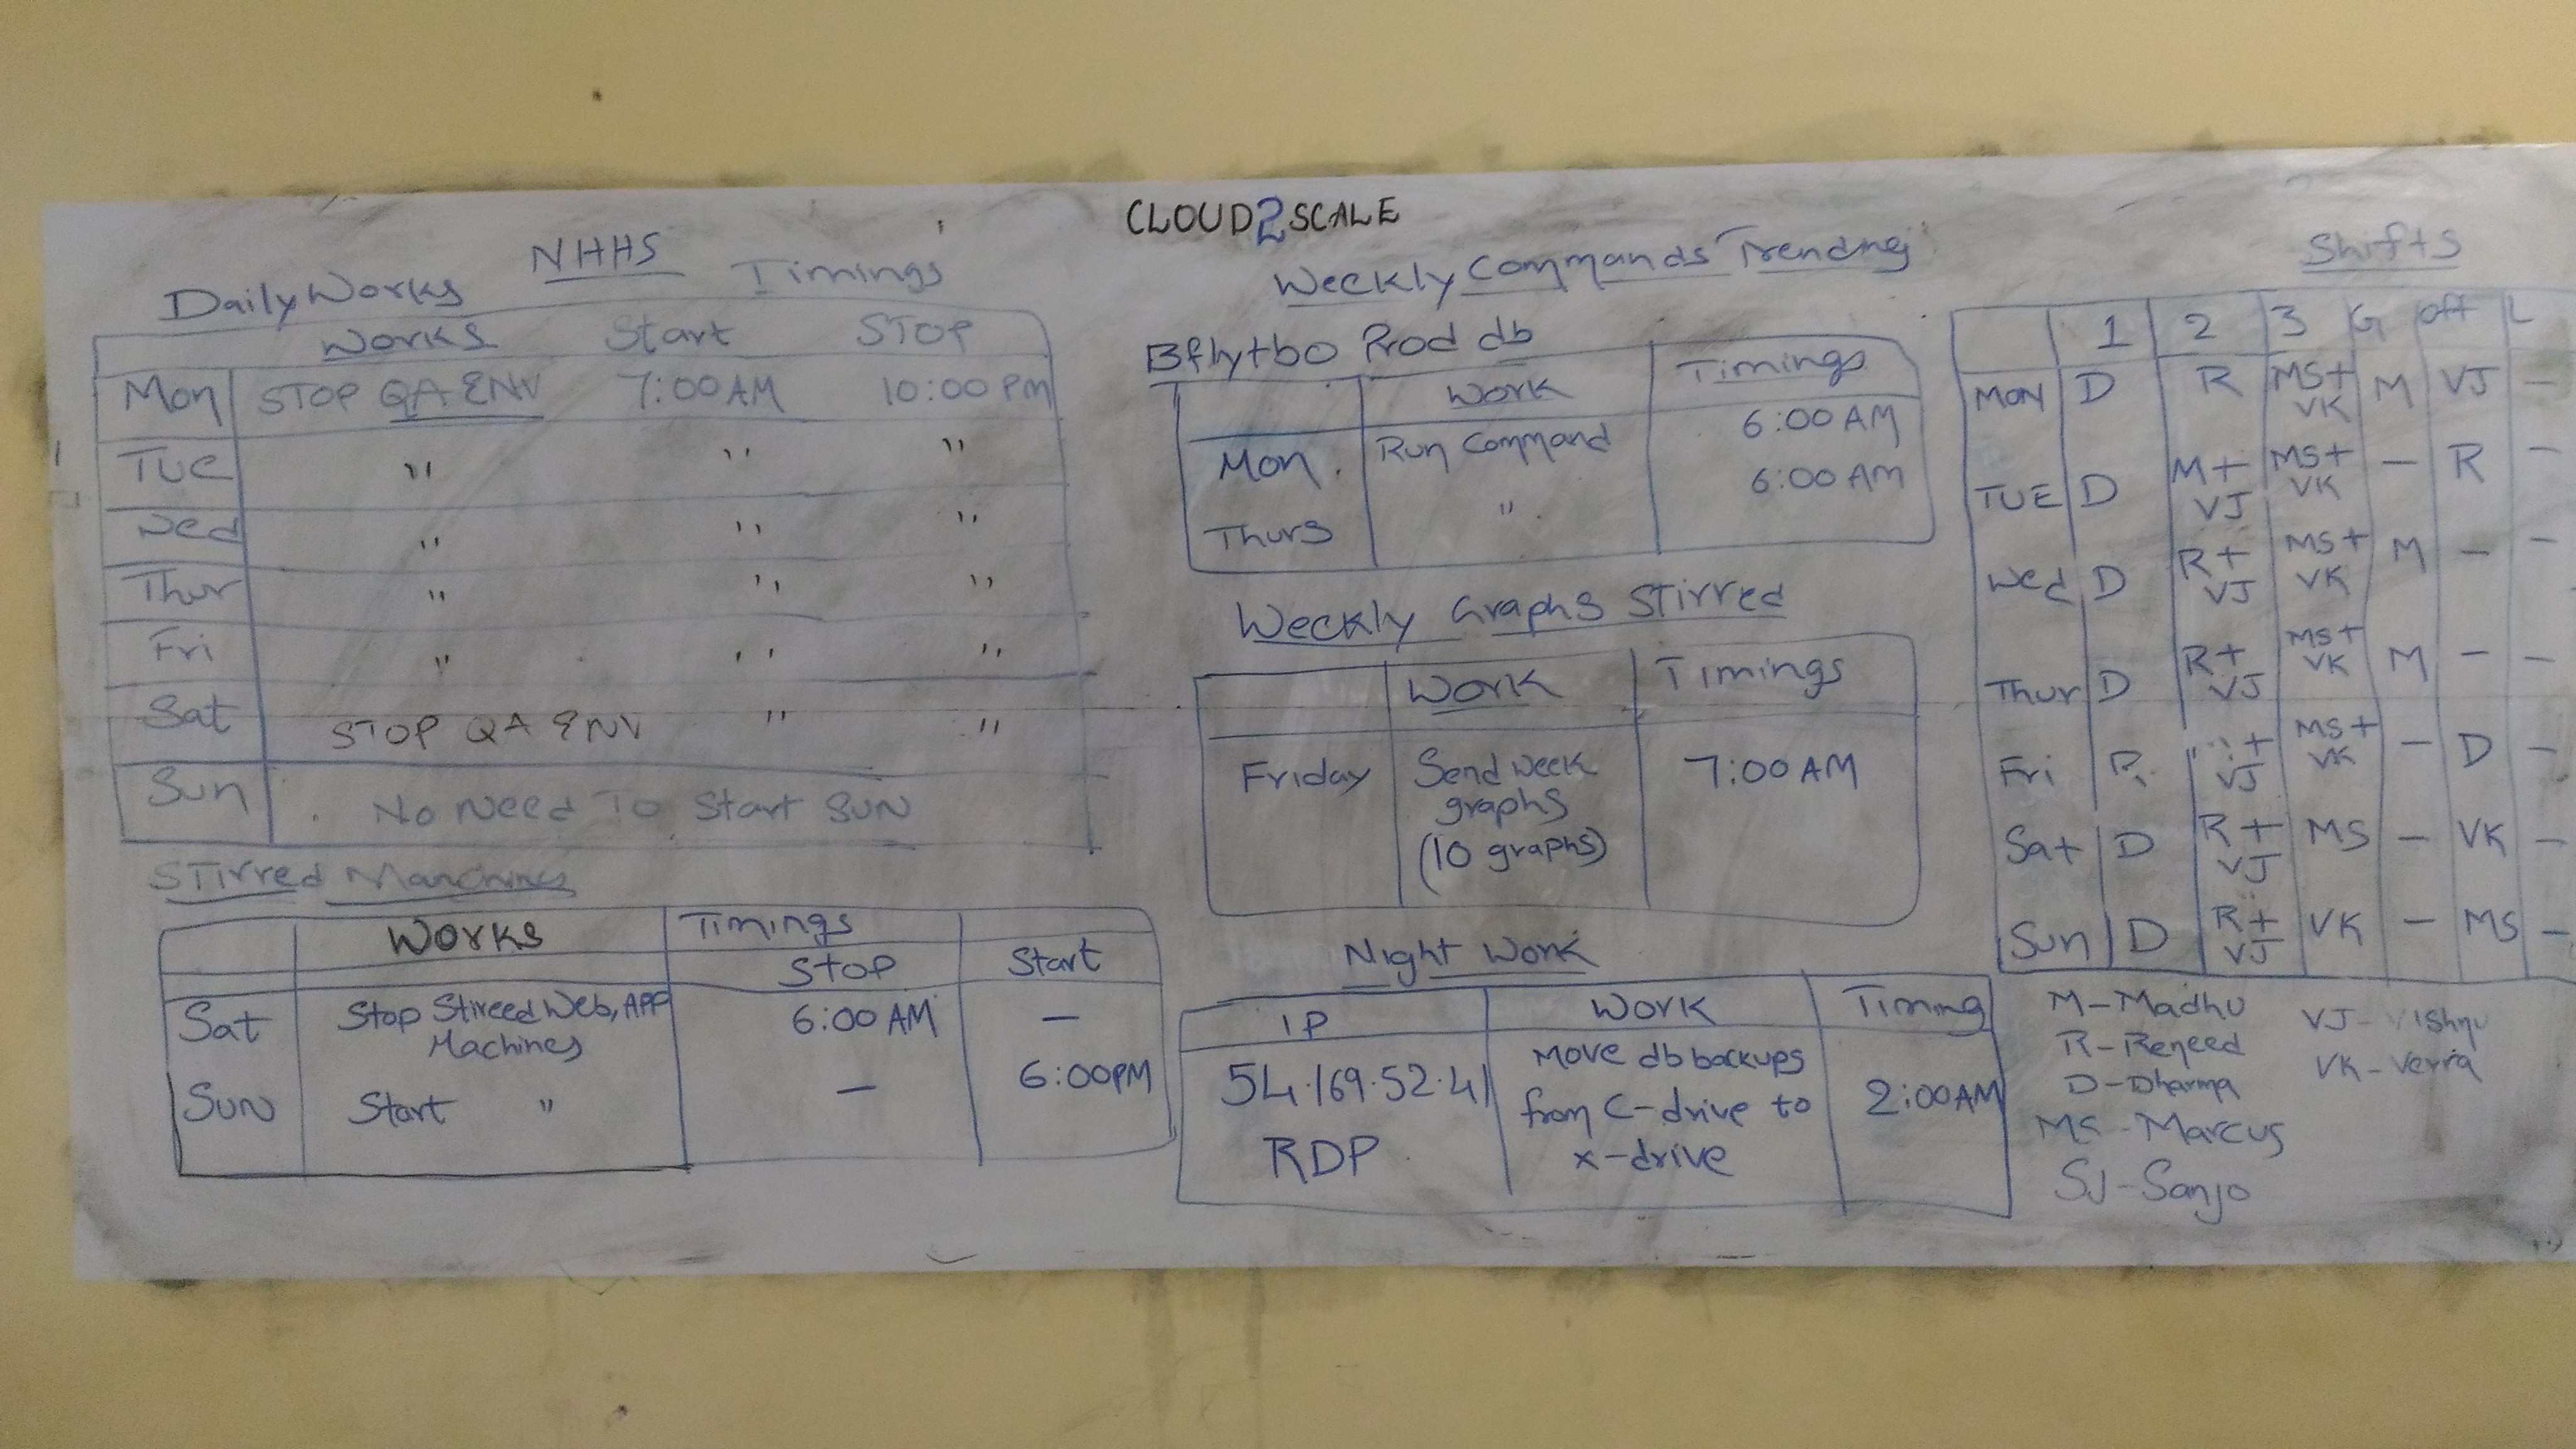 CLOUD2SCALE
NHHS
Daily Works Timings
Works Start STOP
Mon STOP QA ENV 7:00 AM 10:00 PM
Tue " " "
Wed " " "
Thur " " "
Fri " " "
Sat STOP QA ENV " "
Sun No Need To Start SUN
Stirred
Works Timings
Stop Start
Sat Stop Stireed Web, APP 6:00 AM —
Machines
Sun Start " — 6:00PM
Weekly Commands Trending
Bflytbo Prod db
Work Timings
Mon. Run Command 6:00 AM
Thurs " 6:00 AM
Weekly Graphs Stirred
Work Timings
Friday Send week 7:00 AM
graphs
(10 graphs)
Night Work
IP Work Timing
54.169.52.41 Move db backups 2:00AM
RDP from C-drive to
x-drive
Shifts
1 2 3 G off L
MON D R MS+ M VJ —
VK
TUE D M+ MS+ — R —
VJ VK
Wed D R+ MS+ M — —
VJ VK
Thur D R+ MS+ M — —
VJ VK
Fri R + MS+ — D —
VJ VK
Sat D R+ MS — VK —
VJ
Sun D R+ VK — MS —
VJ
M-Madhu VJ-Vishnu
R-Reneed VK-Verra
D-Dharma
MS-Marcus
SJ-Sanjo